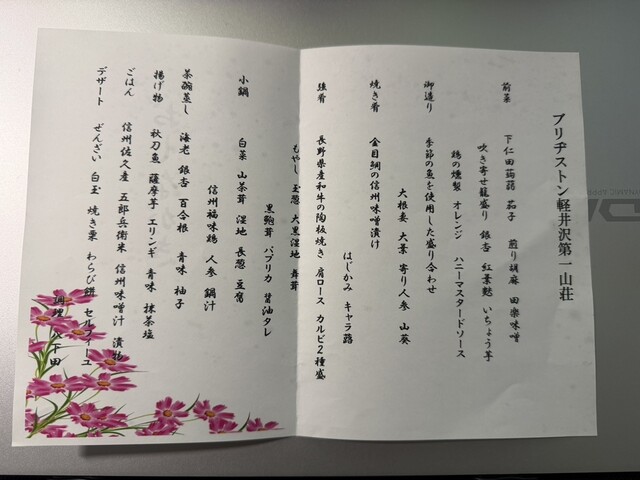 ブリヂストン軽井沢第一山荘
前菜 下仁田蒟蒻 茄子 煎り胡麻 田楽味噌
吹き寄せ籠盛り 銀杏 紅葉麩 いちょう芋
鶏の燻製 オレンジ ハニーマスタードソース
御造り 季節の魚を使用した盛り合わせ
大根妻 大葉 寄り人参 山葵
焼き肴 金目鯛の信州味噌漬け
はじかみ キャラ蕗
強肴 長野県産和牛の陶板焼き 肩ロース カルビ2種盛
もやし 玉葱 大黒湿地 舞茸
黒鮑茸 パプリカ 醤油タレ
小鍋 白菜 山茶茸 湿地 長葱 豆腐
信州福味鶏 人参 鍋汁
茶碗蒸し 海老 銀杏 百合根 青味 柚子
揚げ物 秋刀魚 薩摩芋 エリンギ 青味 抹茶塩
ごはん 信州佐久産 五郎兵衛米 信州味噌汁 漬物
デザート ぜんざい 白玉 焼き栗 わらび餅 セルフィーユ
調理 八下田